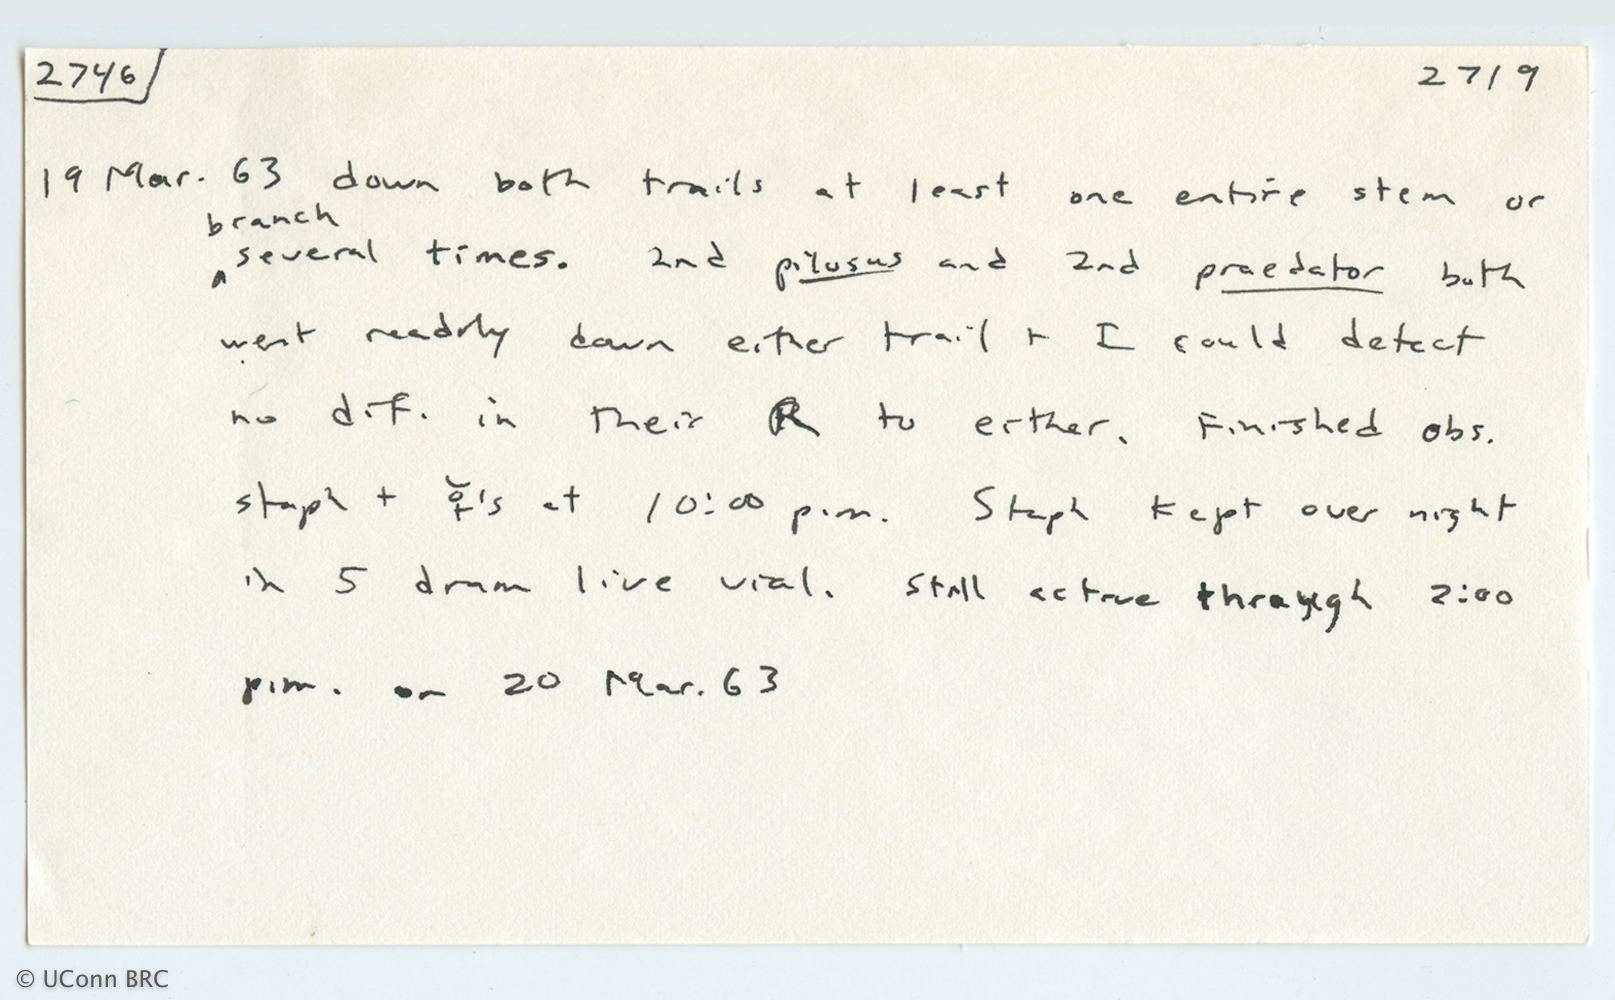 2746 2719
19 Mar. 63 down both trails at least one entire stem or
branch
^ several times. 2nd pilosus and 2nd praedator both
went readily down either trail + I could detect
no dif. in their R to either. Finished obs.
staph + ☿'s at 10:00 p.m. Staph kept over night
in 5 dram live vial. Still active through 2:00
p.m. on 20 Mar. 63
© UConn BRC